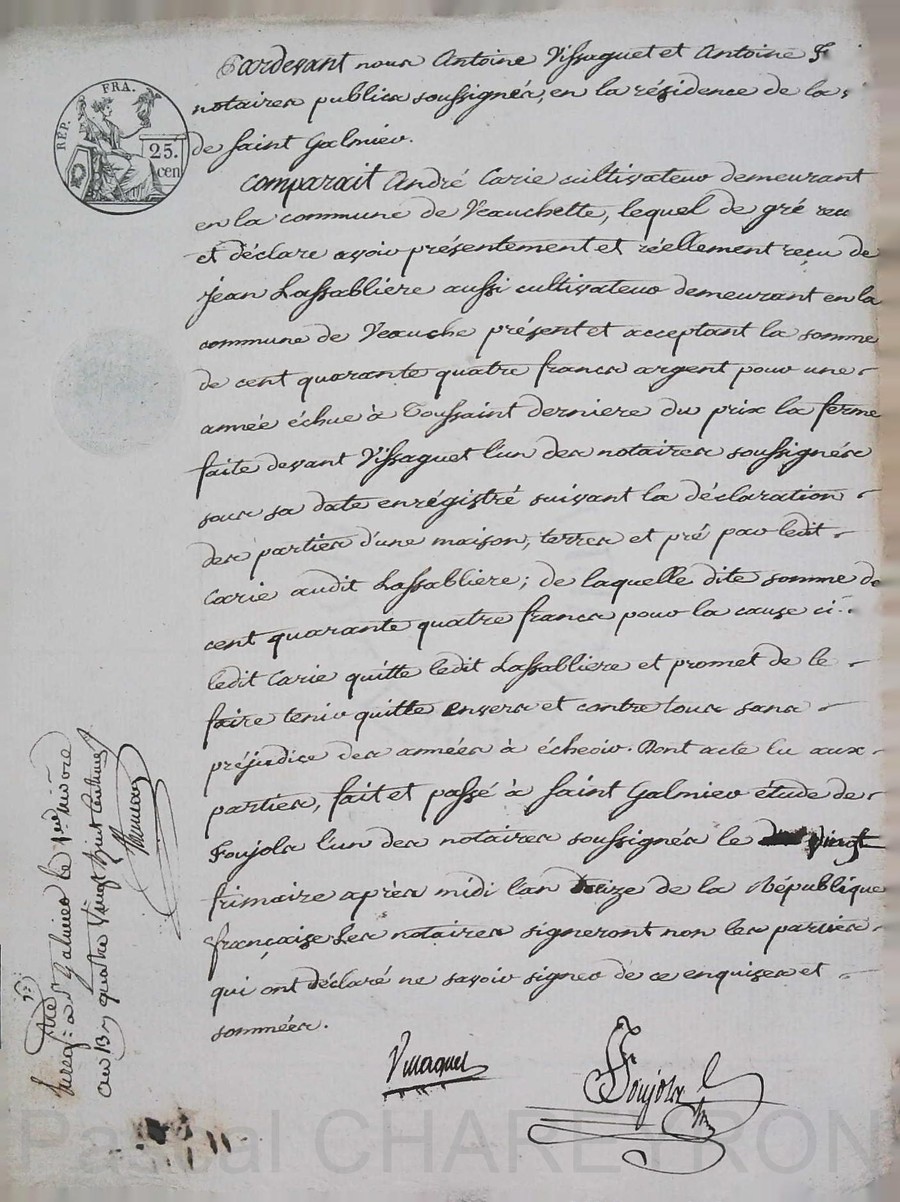 RÉP. FRA.
25.
cen
Pardevant nous Antoine Vissaguet et Antoine F
notaires publics soussignés, en la résidence de la
de Saint Galmier.
Comparait André Carie cultivateur demeurant
en la commune de Veauchette, lequel de gré
et déclare avoir présentement et réellement reçu de
Jean Lassabliere aussi cultivateur demeurant en la
commune de Veauche présent et acceptant la somme
de cent quarante quatre francs argent pour une
année échue à Toussaint derniere du prix la ferme
faite devant Vissaguet l'un des notaires soussignés
sous sa date enrégistré suivant la déclaration
des parties d'une maison, terres et pré par ledit
Carie audit Lassabliere; de laquelle dite somme de
cent quarante quatre francs pour la cause ci
ledit Carie quitte ledit Lassabliere et promet de le
faire tenir quitte envers et contre tous sans
préjudice des années à écheoir. Dont acte lu aux
parties, fait et passé à Saint Galmier étude de
Foujols l'un des notaires soussignés le vingt
frimaire après midi l'an treize de la République
française. Les notaires signeront non les parties
qui ont déclaré ne savoir signer de ce enquises et
sommées.
Vissaguet
Foujols
Enreg: à St Galmier le frimaire
an 13 quatre vingt huit centimes
Pascal CHAREYRON